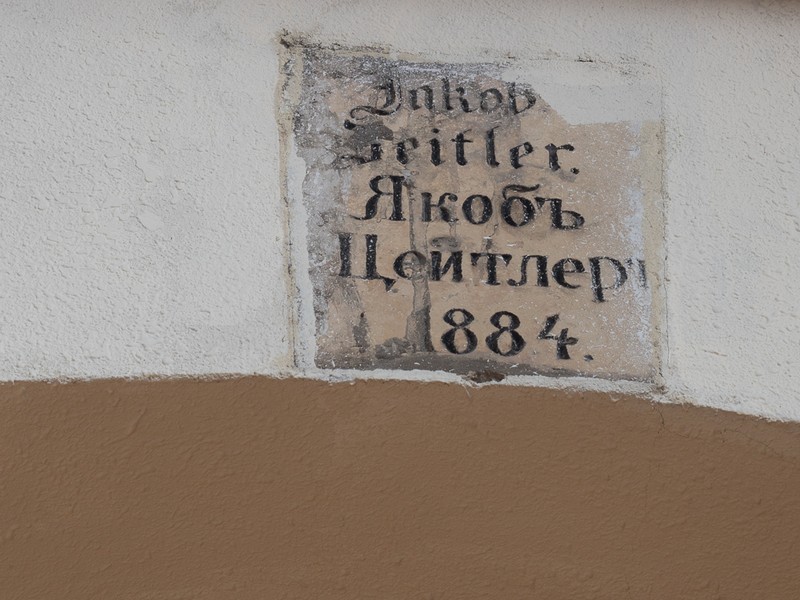 Jakob
Zeitler.
Якобъ
Цейтлеръ
1884.